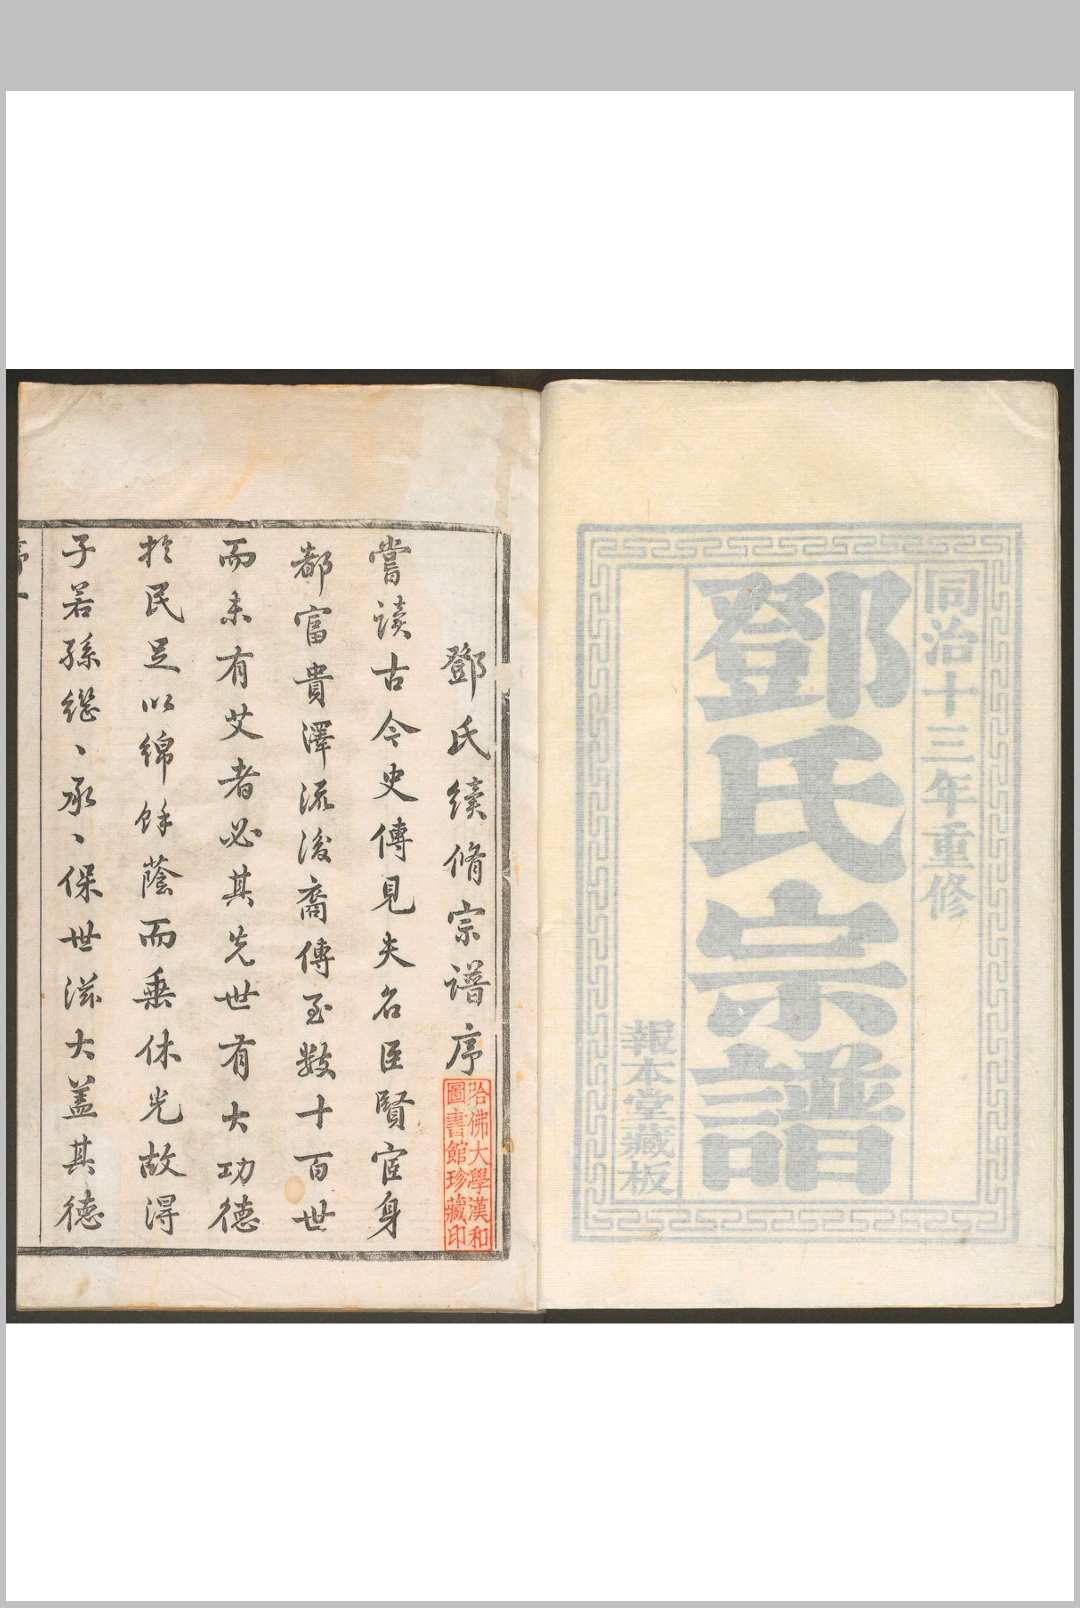 同治十三年重修
鄧氏宗譜
報本堂藏板
鄧氏續脩宗譜序
哈佛大學漢和
圖書館珍藏印
嘗读古今史傳見夫名臣賢宦身
都富貴澤流後裔傳至數十百世
而未有艾者必其先世有大功德
於民足以綿餘蔭而垂休光故得
子若孫繼〻承〻保世滋大蓋其德
序一